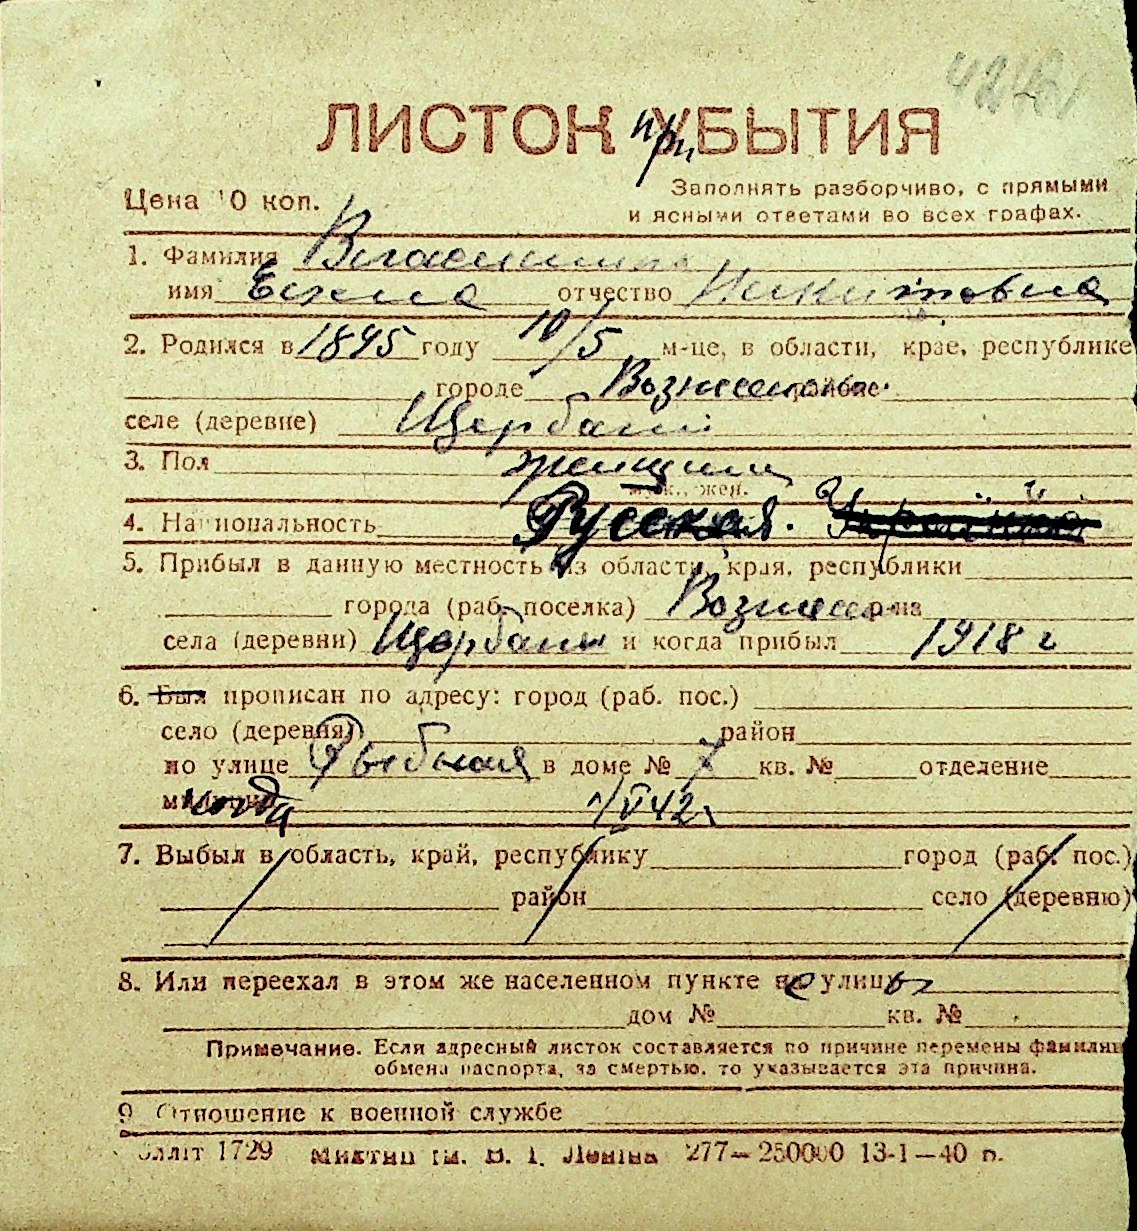 ЛИСТОК УБЫТИЯ
при
Цена 10 коп.
Заполнять разборчиво, с прямыми
и ясными ответами во всех графах.
1. Фамилия
имя Елена отчество Никитовна
2. Родился в 1895 году 10/5 м-це, в области, крае, республике
городе Вознесенск. районе
селе (деревне) Щербани
3. Пол женщина
муж., жен.
4. Национальность Русская.
5. Прибыл в данную местность из области, края, республики
города (раб. поселка) Вознес р-на
села (деревни) Щербани и когда прибыл 1918 г
6. Был прописан по адресу: город (раб. пос.)
село (деревня) район
по улице Рыбная в доме № 7 кв. № отделение
милиции когда 1/VI 42 г
7. Выбыл в область, край, республику город (раб. пос.)
район село (деревню)
8. Или переехал в этом же населенном пункте с улицы
дом № кв. №
Примечание. Если адресный листок составляется по причине перемены фамилии
обмена паспорта, за смертью, то указывается эта причина.
9 Отношение к военной службе
1729 им. В. І. Леніна 277—250000 13-1—40 р.